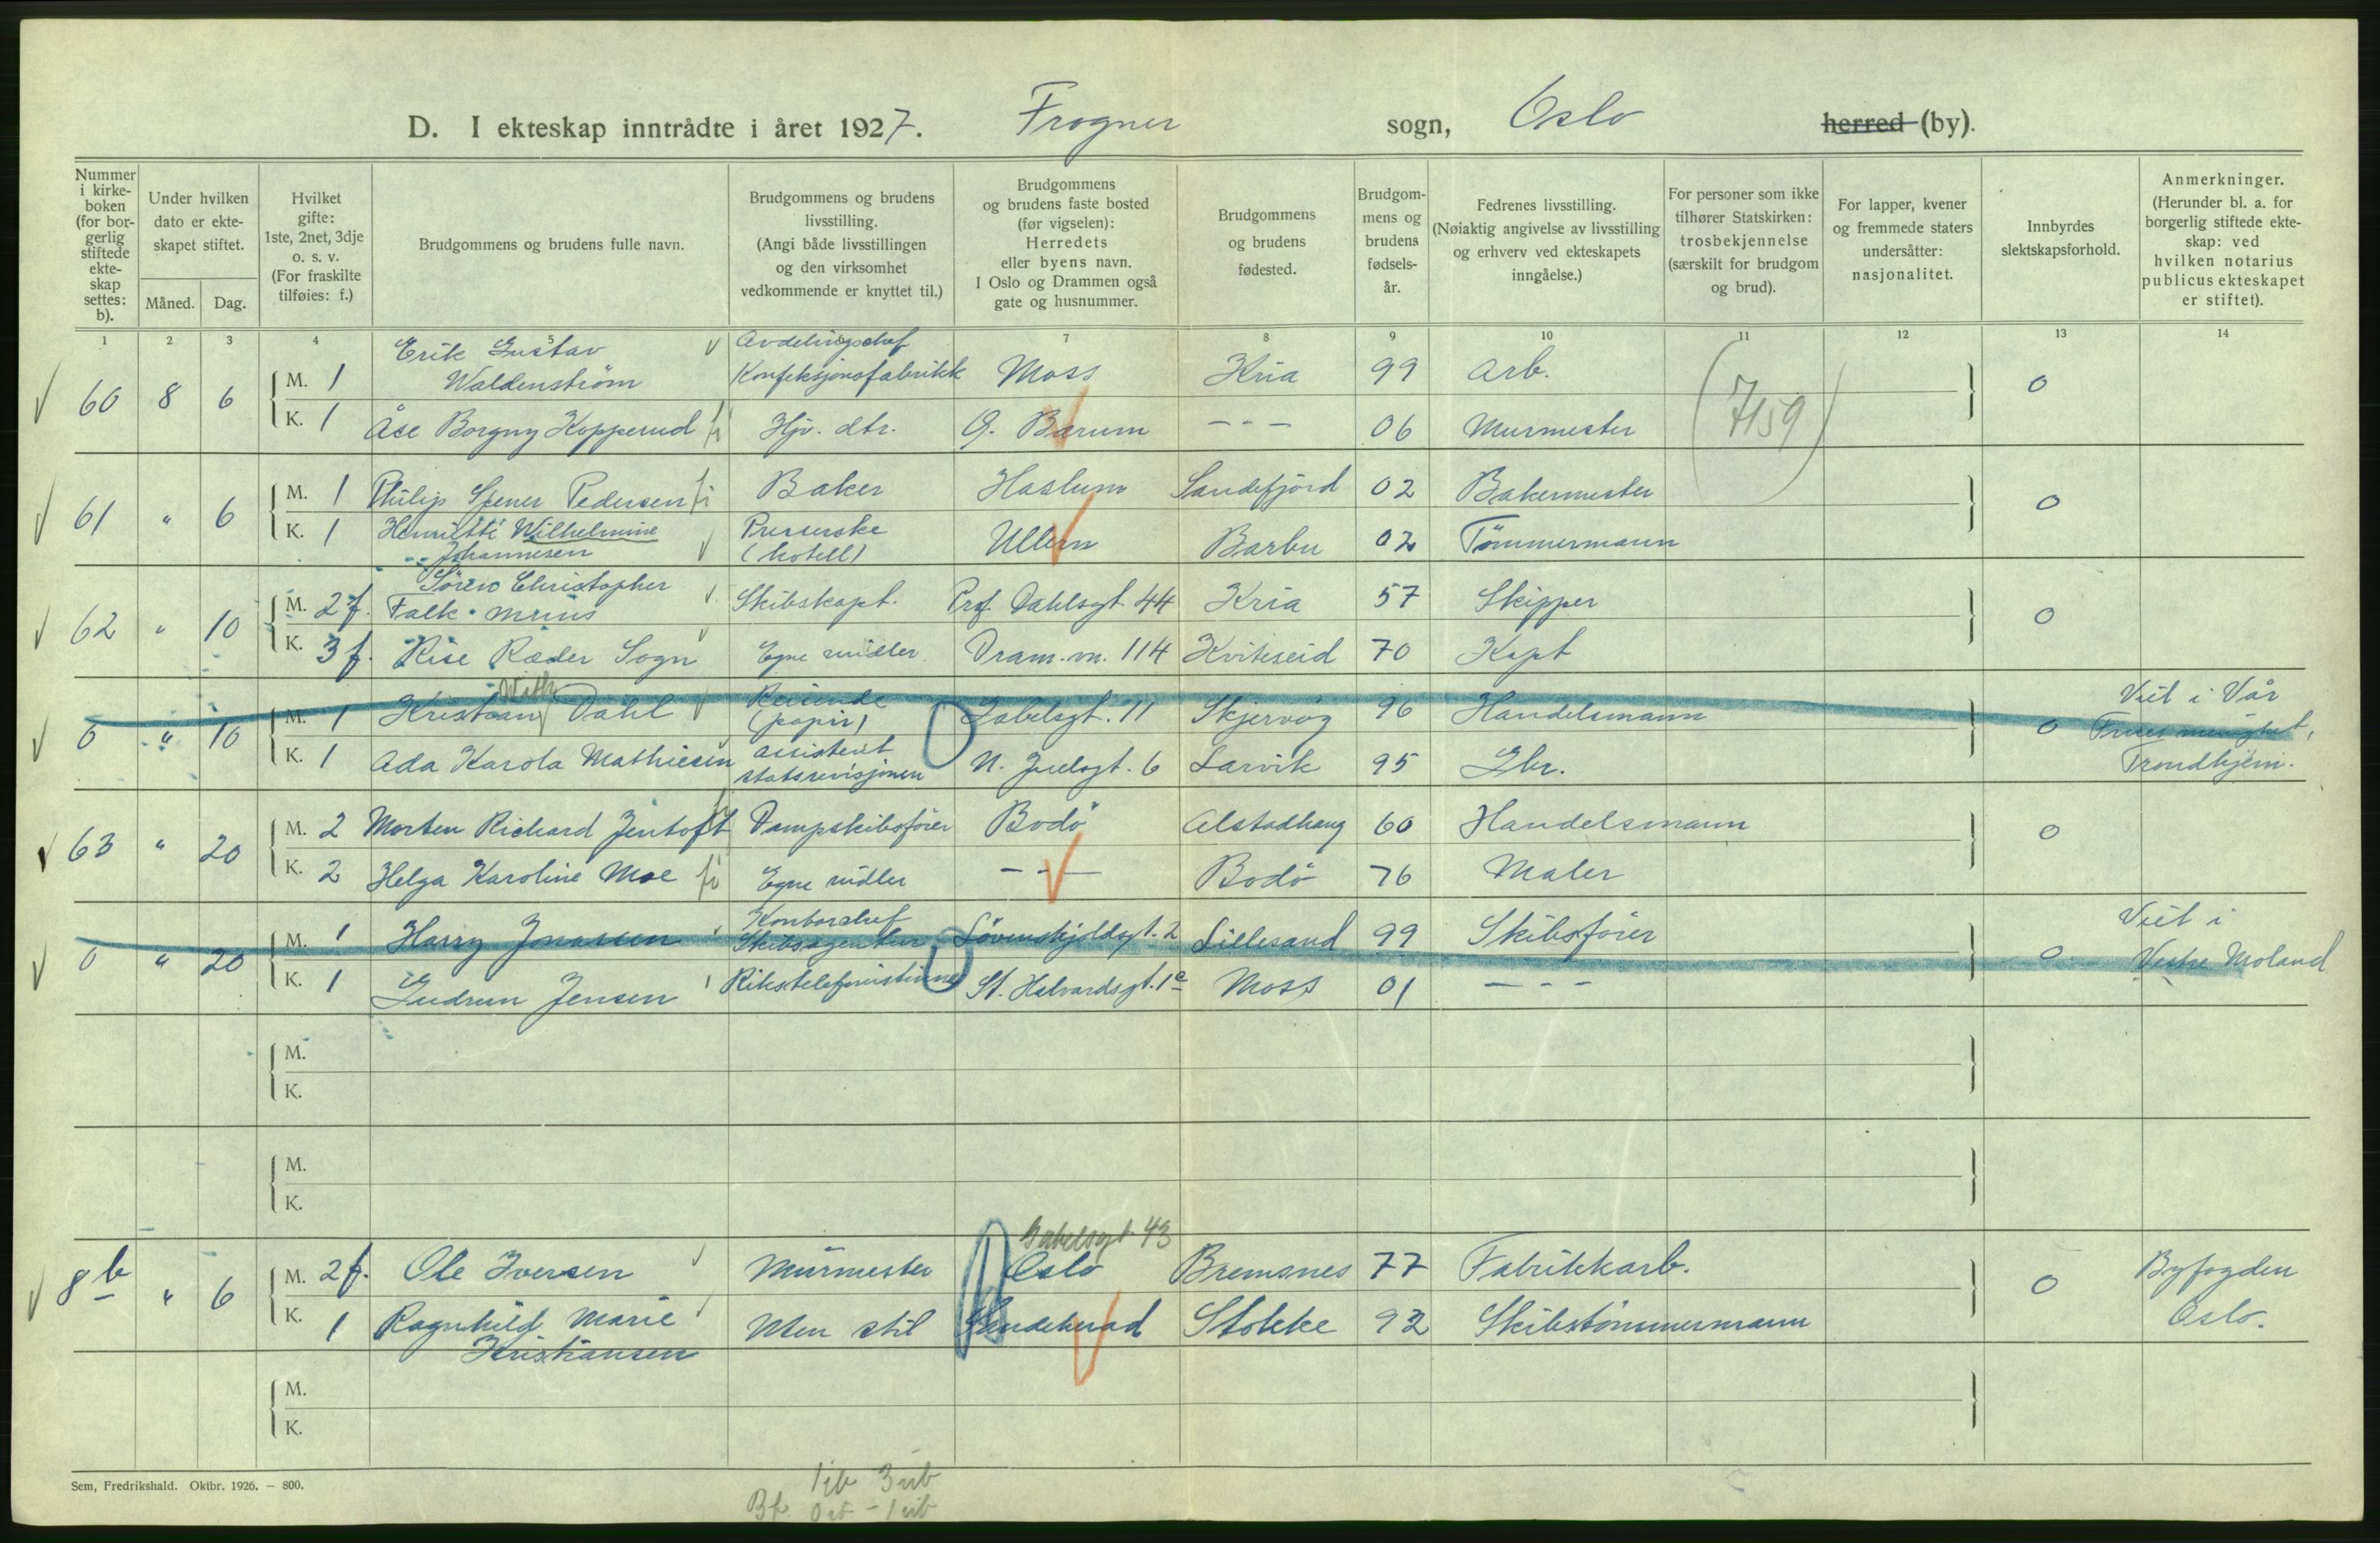 D. I ekteskap inntrådte i året 1927. Frogner sogn, Oslo herred (by).
Nummer i kirke-boken (for bor-gerlig stiftede ekte-skap settes: b).
Under hvilken dato er ekte-skapet stiftet.
Måned. Dag.
Hvilket gifte: 1ste, 2net, 3dje o. s. v. (For fraskilte tilføies: f.)
Brudgommens og brudens fulle navn.
Brudgommens og brudens livsstilling. (Angi både livsstillingen og den virksomhet vedkommende er knyttet til.)
Brudgommens og brudens faste bosted (før vigselen): Herredets eller byens navn. I Oslo og Drammen også gate og husnummer.
Brudgommens og brudens fødested.
Brudgom-mens og brudens fødsels-år.
Fedrenes livsstilling. (Nøiaktig angivelse av livsstilling og erhverv ved ekteskapets inngåelse.)
For personer som ikke tilhører Statskirken: trosbekjennelse (særskilt for brudgom og brud).
For lapper, kvener og fremmede staters undersåtter: nasjonalitet.
Innbyrdes slektskapsforhold.
Anmerkninger. (Herunder bl. a. for borgerlig stiftede ekte-skap: ved hvilken notarius publicus ekteskapet er stiftet).
1 2 3 4 5 6 7 8 9 10 11 12 13 14
60 8 6 M. 1 Erik Gustav Waldenström Avdelingschef Konfeksjonsfabrikk Moss Kria 99 Arb. 0
K. 1 Åse Borgny Kopperud Hjv. dtr. Ø. Bærum - - - 06 Murmester (7159)
61 " 6 M. 1 Philip Spener Pedersen Baker Haslum Sandefjord 02 Bakermester 0
K. 1 Henriette Wilhelmine Johannesen Presserske (hotell) Ullern Barbu 02 Tömmermann
62 " 10 M. 2 f. Sören Christopher Falk-Muus Skibskapt. Prof. Dahlsgt. 44 Kria 57 Skipper 0
K. 3 f. Rise Ræder Sogn Egne midler Dram.vn. 114 Kviteseid 70 Kapt
0 " 10 M. 1 Kristian With Dahl Reisende (papir) Gabelsgt. 11 Skjervøy 96 Handelsmann 0 Viet i Vår Frues menighet, Trondhjem.
K. 1 Ada Karola Mathiesen assistent statsrevisjonen N. Juelsgt. 6 Larvik 95 Gbr.
63 " 20 M. 2 Morten Richard Jentoft Dampskibsförer Bodö Alstadhaug 60 Handelsmann 0
K. 2 Helga Karoline Moe Egne midler - - - Bodö 76 Maler
0 " 20 M. 1 Harry Jonassen Kontorchef Skibsagentur Lövenskjoldsgt. 2 Lillesand 99 Skibsförer 0 Viet i Vestre Moland
K. 1 Gudrun Jensen Rikstelefonistinne St. Halvardsgt. 1e Moss 01 - - -
M.
K.
M.
K.
8 b " 6 M. 2 f. Ole Iversen Murmester Gabelsgt. 43 Oslo Bremsnes 77 Fabrikkarb. 0 Byfogden Oslo.
K. 1 Ragnhild Marie Kristiansen Uten stil Sandeherad Stokke 92 Skibstömmermann
M.
K.
Sem, Fredrikshald. Oktbr. 1926. — 800.